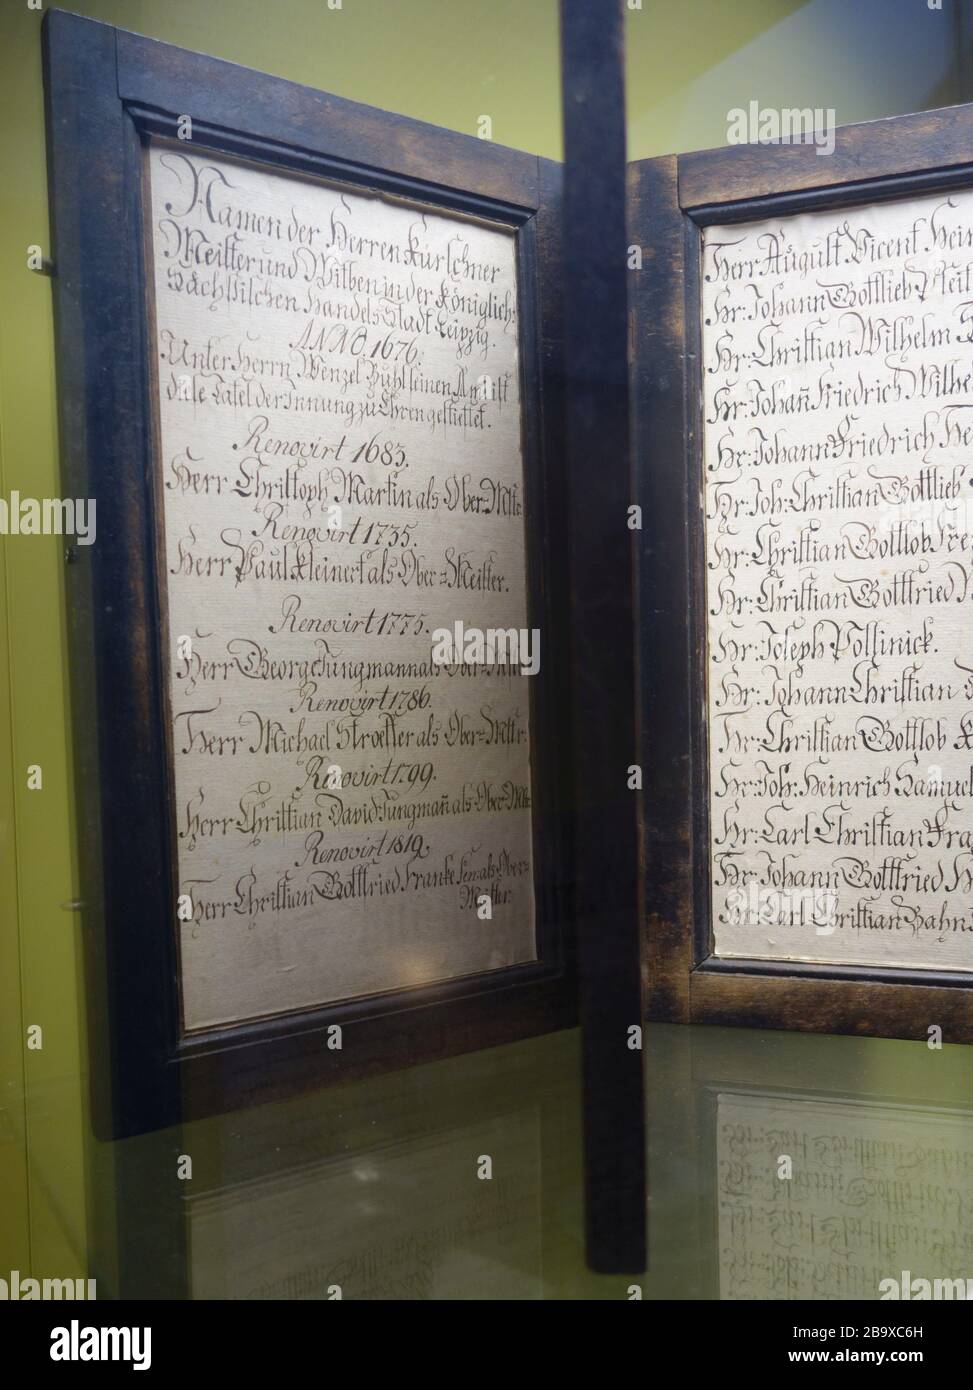 Namen der Herren Kürschner
Meister und Witben in der Königlich:
Sächsischen Handels Stadt Leipzig.
ANNO. 1676.
Unter Herrn Wenzel Buhlfeinen Amist
diese Tafel der Innung zu Ehren gestiftet.
Renovirt 1683.
Herr Christoph Martin als Ober=Mstr:
Renovirt 1735.
Herr Paul Kleinert als Ober=Meister.
Renovirt 1775.
Herr George Jungmann als Ober=Mstr
Renovirt 1786.
Herr Michael Stroesser als Ober=Mstr:
Renovirt 1799.
Herr Christian David Jungmañ als Ober=Mstr
Renovirt 1819.
Herr Christian Gottfried Franke Sen: als Ober=
Meister.
Herr August Vicent Hein
Hr: Johann Gottlieb
Hr: Christian Wilhelm
Hr: Johañ Friedrich Wilhe
Hr: Johann Friedrich He
Hr: Joh: Christian Gottlieb
Hr: Christian Gottlob Fre
Hr: Christian Gottfried
Hr: Joseph Possinick.
Hr: Johann Christian
Hr: Christian Gottlob
Hr: Joh: Heinrich Samuel
Hr: Carl Christian Fra
Hr: Johann Gottfried H
Hr: Carl Christian Bahn
alamy
alamy
alamy
Image ID: 2B9XC6H
www.alamy.com